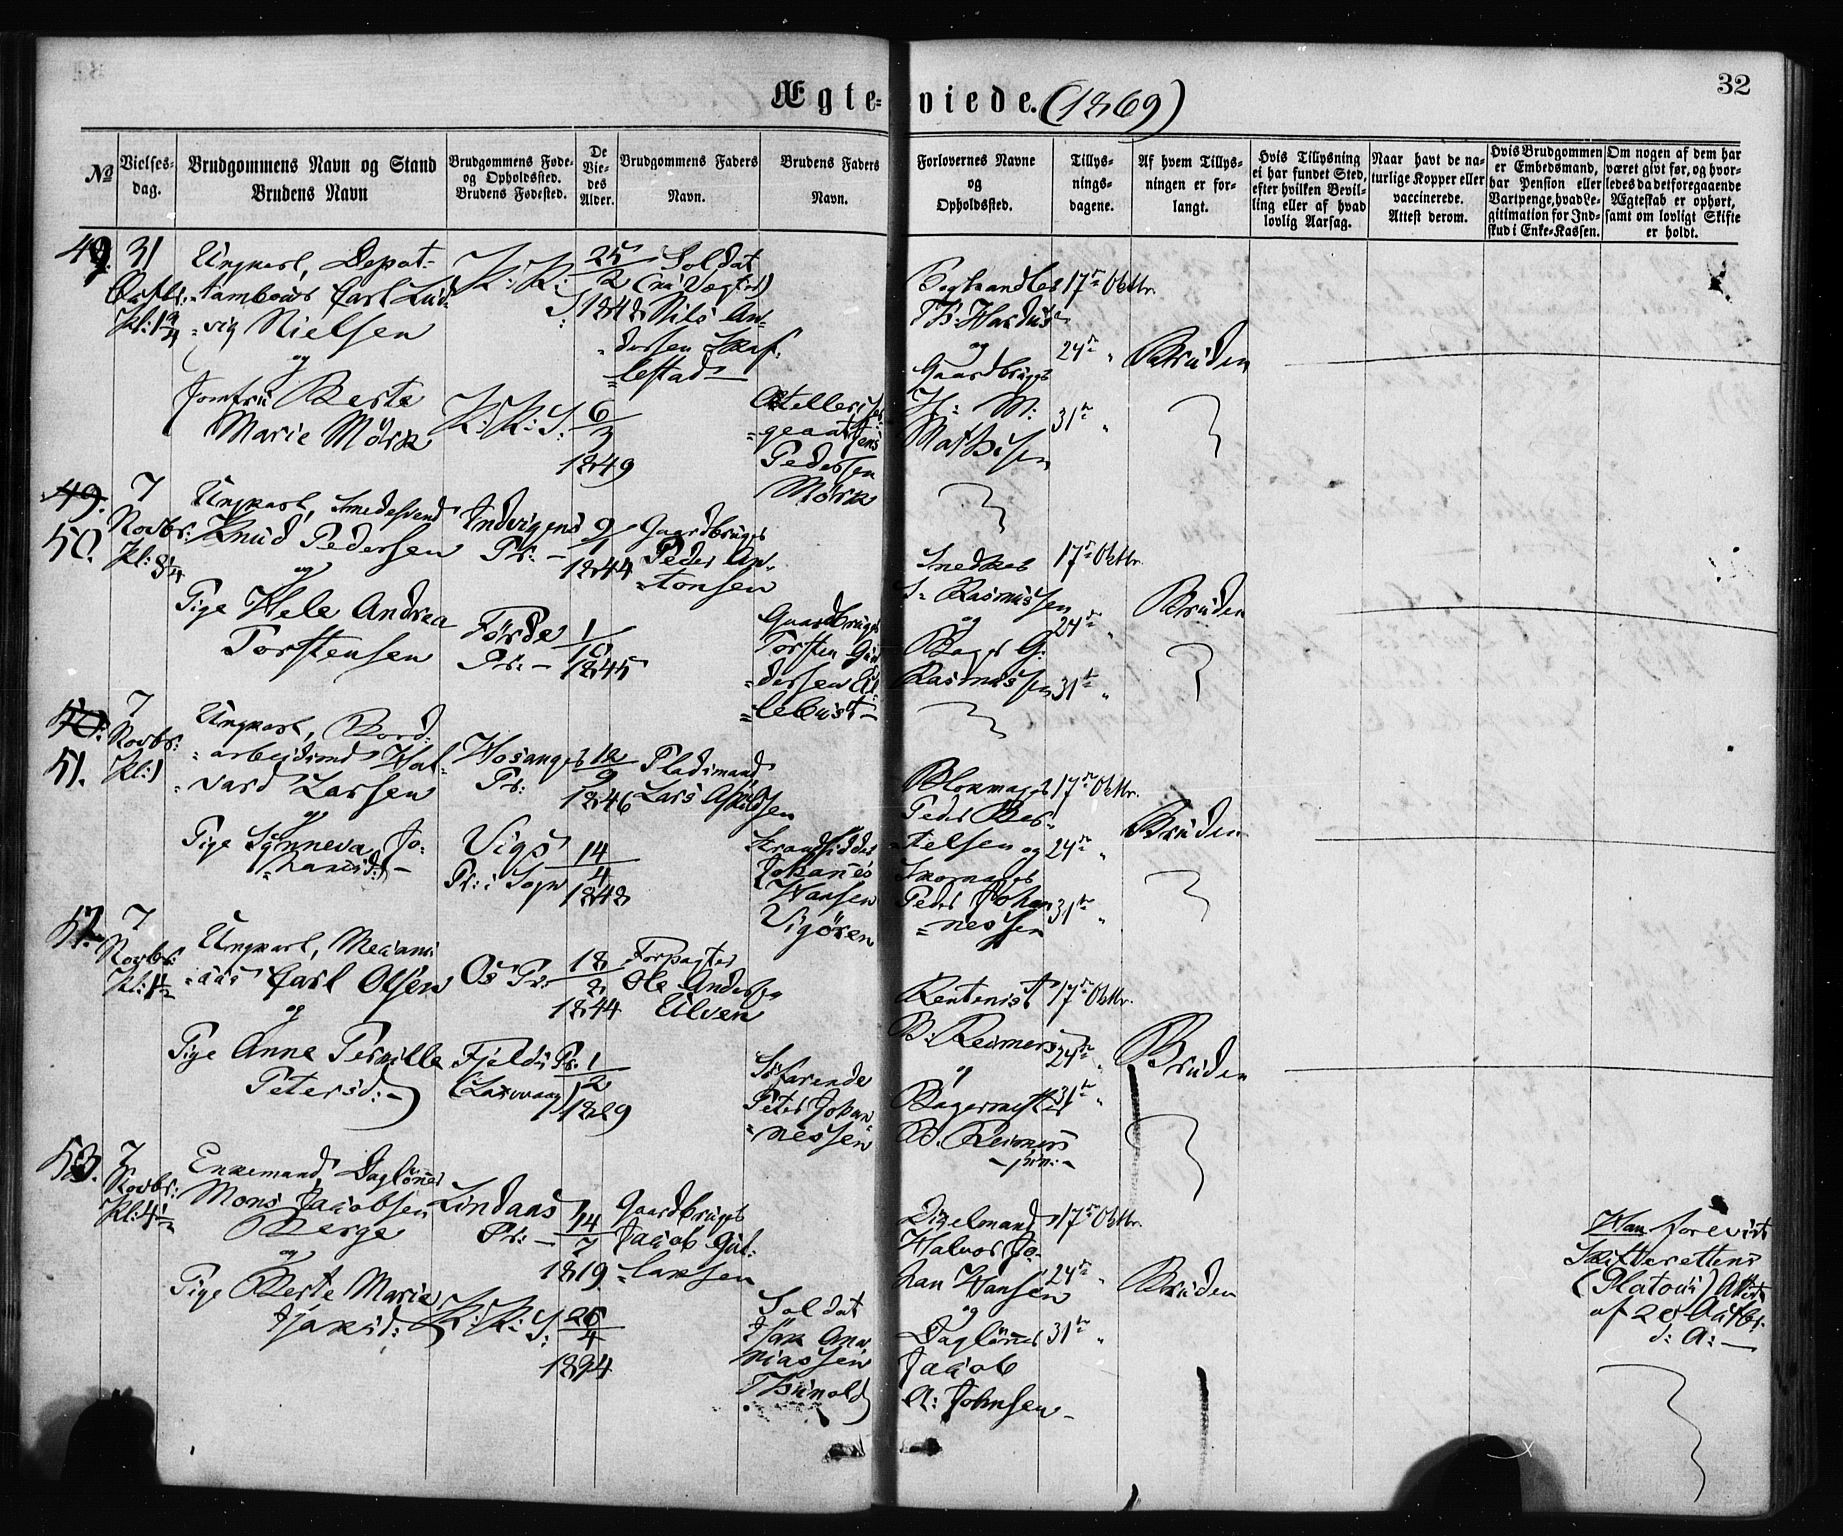 Ægteviede. (1869)
32
№
Vielsesdag.
Brudgommens Navn og Stand
Brudens Navn
Brudgommens Føde-
og Opholdssted.
Brudens Fødested.
De
Vie-
des
Alder.
Brudgommens Faders
Navn.
Brudens Faders
Navn.
Forlovernes Navne
og
Opholdssted.
Tillys-
nings-
dagene.
Af hvem Tillys-
ningen er for-
langt.
Hvis Tillysning
ei har fundet Sted,
efter hvilken Bevil-
ling eller af hvad
lovlig Aarsag.
Naar havt de na-
turlige Kopper eller
vaccinerede.
Attest derom.
Hvis Brudgommen
er Embedsmand,
har Pension eller
Vartpenge, hvad Le-
gitimation for Ind-
skud i Enke-Kassen.
Om nogen af dem har
været givt før, og hvor-
ledes da det foregaaende
Ægteskab er ophørt,
samt om lovligt Skifte
er holdt.
49.
31
Octbr.
Ungkarl, Depot-
tambour Carl Lud-
vig Nielsen
og
Jomfru Berte
Marie Mörk
K: K: S:
25/2 1848
Soldat
(nu Vægter)
Nils An-
dersen
K: K: S:
6/3
1849
Pedersen
Mörk
Th: Hardus
og
Gaardbruger
H: M:
Mathisen
17de Oktbr.
24de "
31te "
Bruden
49.
50.
7
Novbr:
Ungkarl, Smedesvend
Knud Pedersen
og
Pige Hele Andrea
Torstensen
Indvigens
Pr: -
9/1
1844
Gaardbruger
Peder An-
tonsen
Förde
Pr: -
1/10
1845
Gaardbruger
Torsten Gun-
dersen El-
lebust -
Snedker
S: Rasmussen
og
Bager G:
Rasmussen
17de Oktbr.
24de "
31te "
Bruden
50.
51.
7
Novbr:
Kl: 1
Ungkarl, Bord-
arbeidsmd Hal-
vard Larsen
og
Pige Synneva Jo-
hannesd: -
Hosanger
Pr:
12/9
1846
Pladsmand
Lars
Vigs
Pr: i Sogn
14/4
1848
Strandsidder
Johannes
Hansen
Vigören
Blokmager
Peder Ber-
telsen og
Skomager
Peder Johan-
nessen
17de Oktbr.
24de "
31te "
Bruden
52.
7
Novbr:
Kl: 1 1/2
Ungkarl, Mecani-
cus Carl Olsen
og
Pige Anne Pernille
Petersd: -
Os Pr:
18/2
1844
Forpagter
Ole Andersen
Ulven
Fjeldi Pr.
(Lasvaag)
1/2
1829
Söfarende
Peter Johan-
nessen
Rentenist
B: Reimers
og
Bagermester
B. Reimers
- jun: -
17de Oktbr.
24de "
31te "
Bruden
53.
7
Novbr:
Kl: 4 1/2
Enkemand, Daglöner
Mons Jacobsen
Berge
og
Pige Berte Marie
Isaksd:
Lindaas
Pr: -
14/7
1819.
Gaardbruger
Jacob Gul-
laksen
K: K: S:
26/4
1824
Soldat
Isak Ana-
niassen
Thunold
Halvor Jo-
han Hansen
og
Daglöner
Jacob
A: Johnsen -
17de Oktbr.
24de "
31te "
Bruden
Han foreviste
Skifterettens
(Platous) Attest
af 28 Octbr.
d: A: -